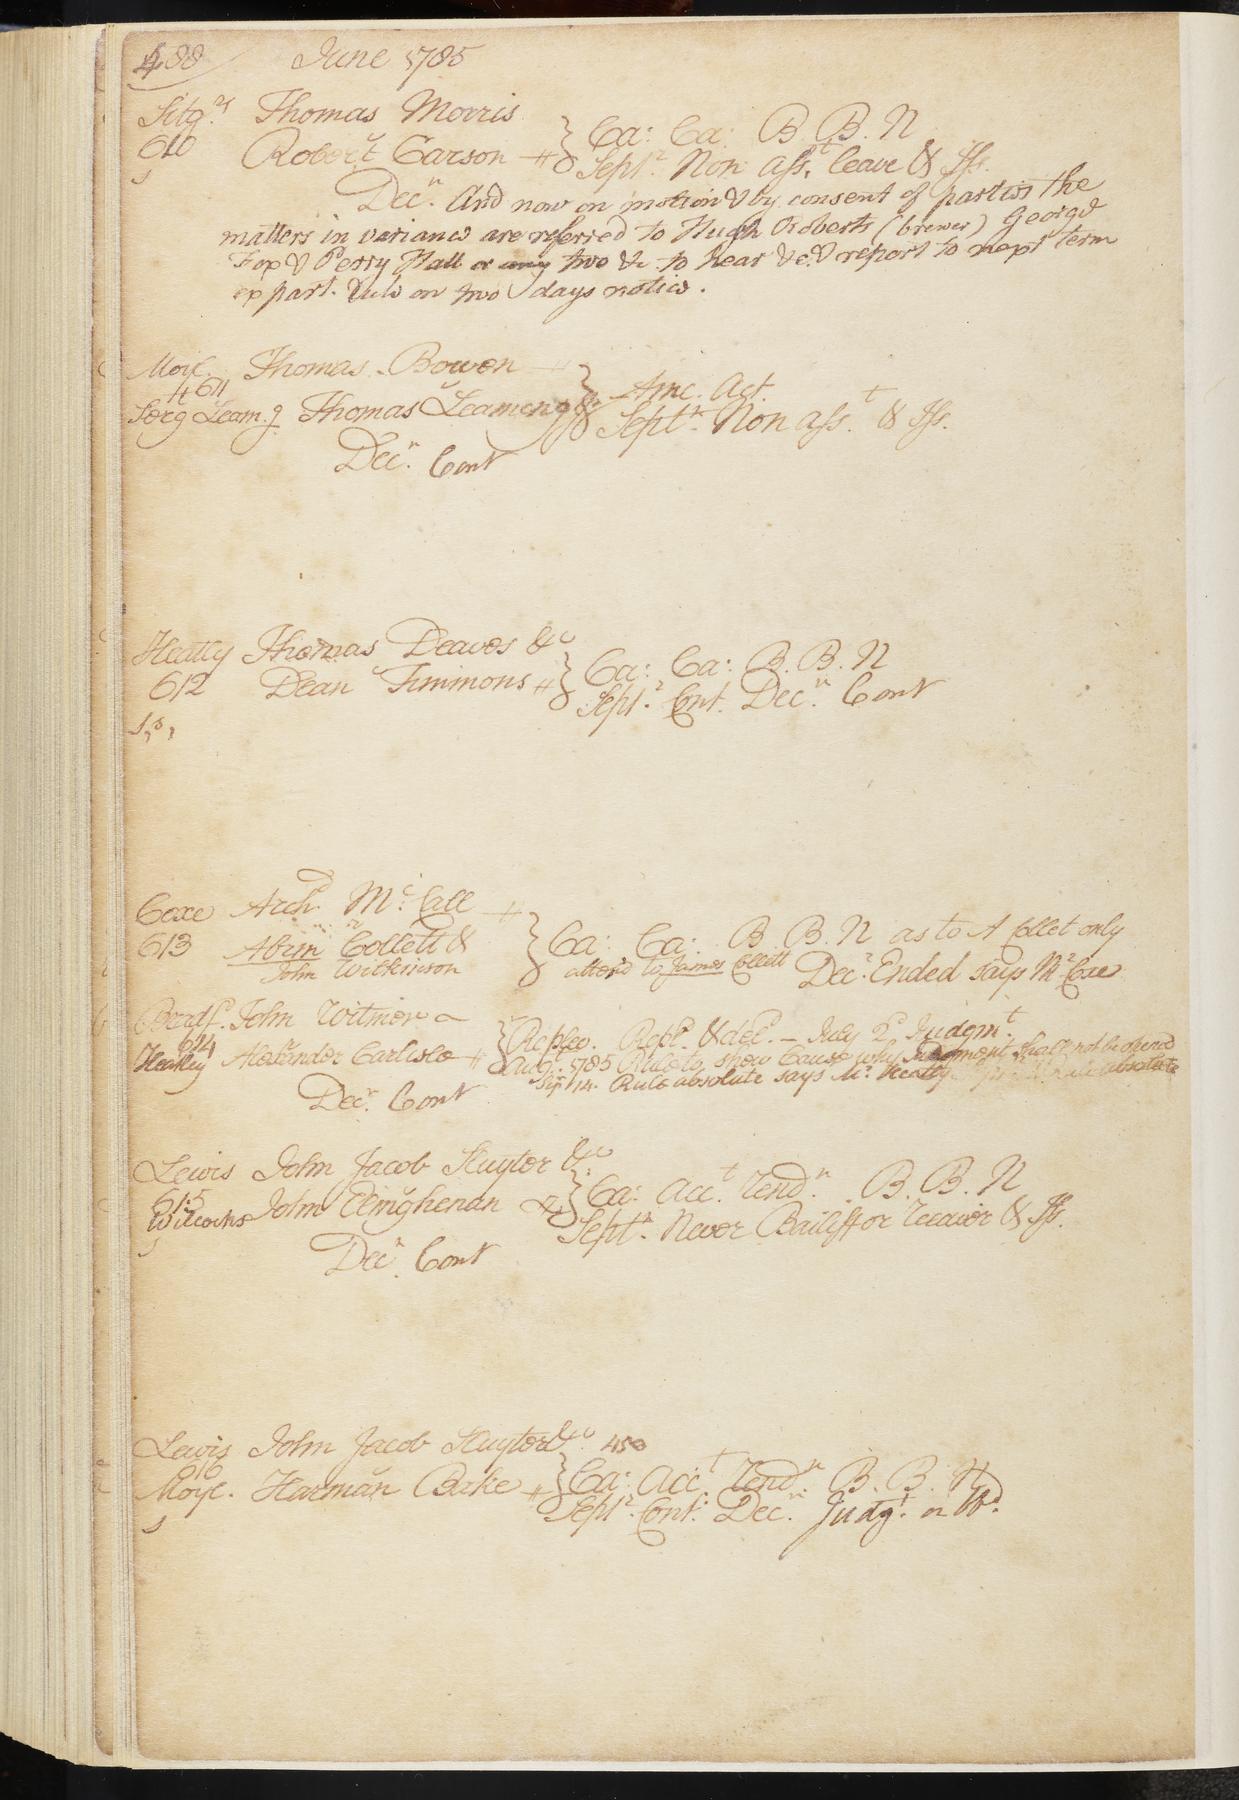 488 June 1785
Sitg.r Thomas Morris
610 Robert Carson } Ca: Ca: B. B. N
Sept.r Non Ass.t leave & Iss.
Dec.r And now on motion & by consent of parties the
matters in variance are referred to Hugh Roberts (brewer) George
Fox & Perry Hall or any two &c to hear &c. & report to next term
ex part. Rule on two days notice.
Moyl. Thomas Bowen
611 Amc. Act.
Serg Leam.g Thomas Leaming &c Sept.r Non ass.t & Iss.
Dec.r Cont
Heatly Thomas Deaves &c
612 Dean Timmons } Ca: Ca: B. B. N
Sept.r Cont. Dec.r Cont
Coxe Arch.d Mc. Call
613 Abrm Collett & } Ca: Ca: B. B. N as to A Collet only
John Wilkinson alter'd to James Collett Dec.r Ended says Mr Coxe
Bradf.d John Witmer
614 Replev. Repl.d & del.d – July 2d Judgm.t
Heatley Alexander Carlisle Aug.t 1785 Rule to show Cause why Judgment shall not be opened
Sep 14. Rule absolute says Mr. Heatly absolute
Dec.r Cont
Lewis John Jacob Sluyter &c.
615 John Clinghenan } Ca: Acc.t Rend.r B. B. N
Wilcocks Sept.r Never Bailiff or Receiver & Iss.
Dec.r Cont
Lewis John Jacob Sluyter &c 450
616 Ca: Acc.t Rend.r B. B. N
Moyl. Harman Barke Sept.r Cont. Dec.r Judg.t on W.